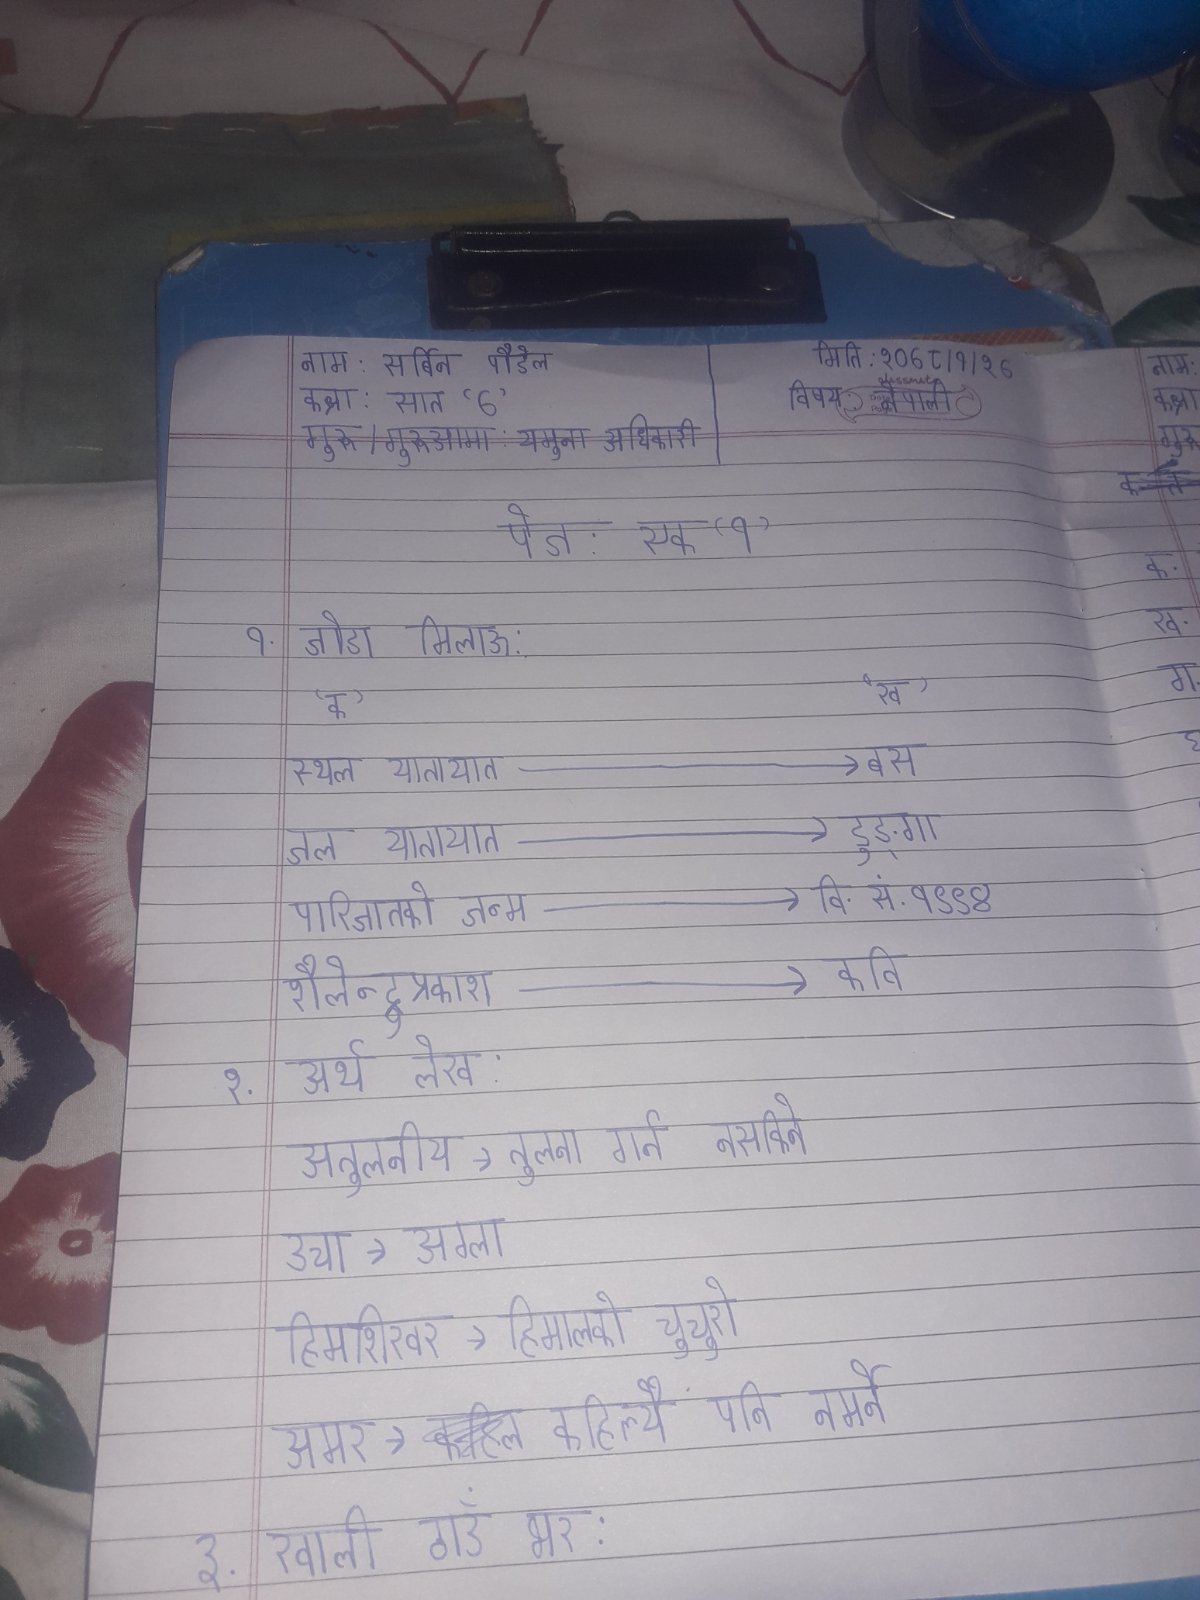 नाम: सर्बिन पौडेल
कक्षा: सात '७'
गुरू/गुरूआमा: यमुना अधिकारी
मिति: २०७८/१/२७
classmate
विषय: नेपाली
पेज: एक '१'
१. जोडा मिलाऊ:
'क' 'ख'
स्थल यातायात → बस
जल यातायात → डुङ्गा
पारिजातको जन्म → वि. सं. १९९४
शैलेन्द्रुप्रकाश → कवि
२. अर्थ लेख:
अतुलनीय → तुलना गर्न नसकिने
उचा → अग्ला
हिमशिखर → हिमालको चुचुरो
अमर → कहिल्यै पनि नमर्ने
३. खाली ठाउँ भर:
नाम:
कक्षा
गुरू
क.
ख.
ग.